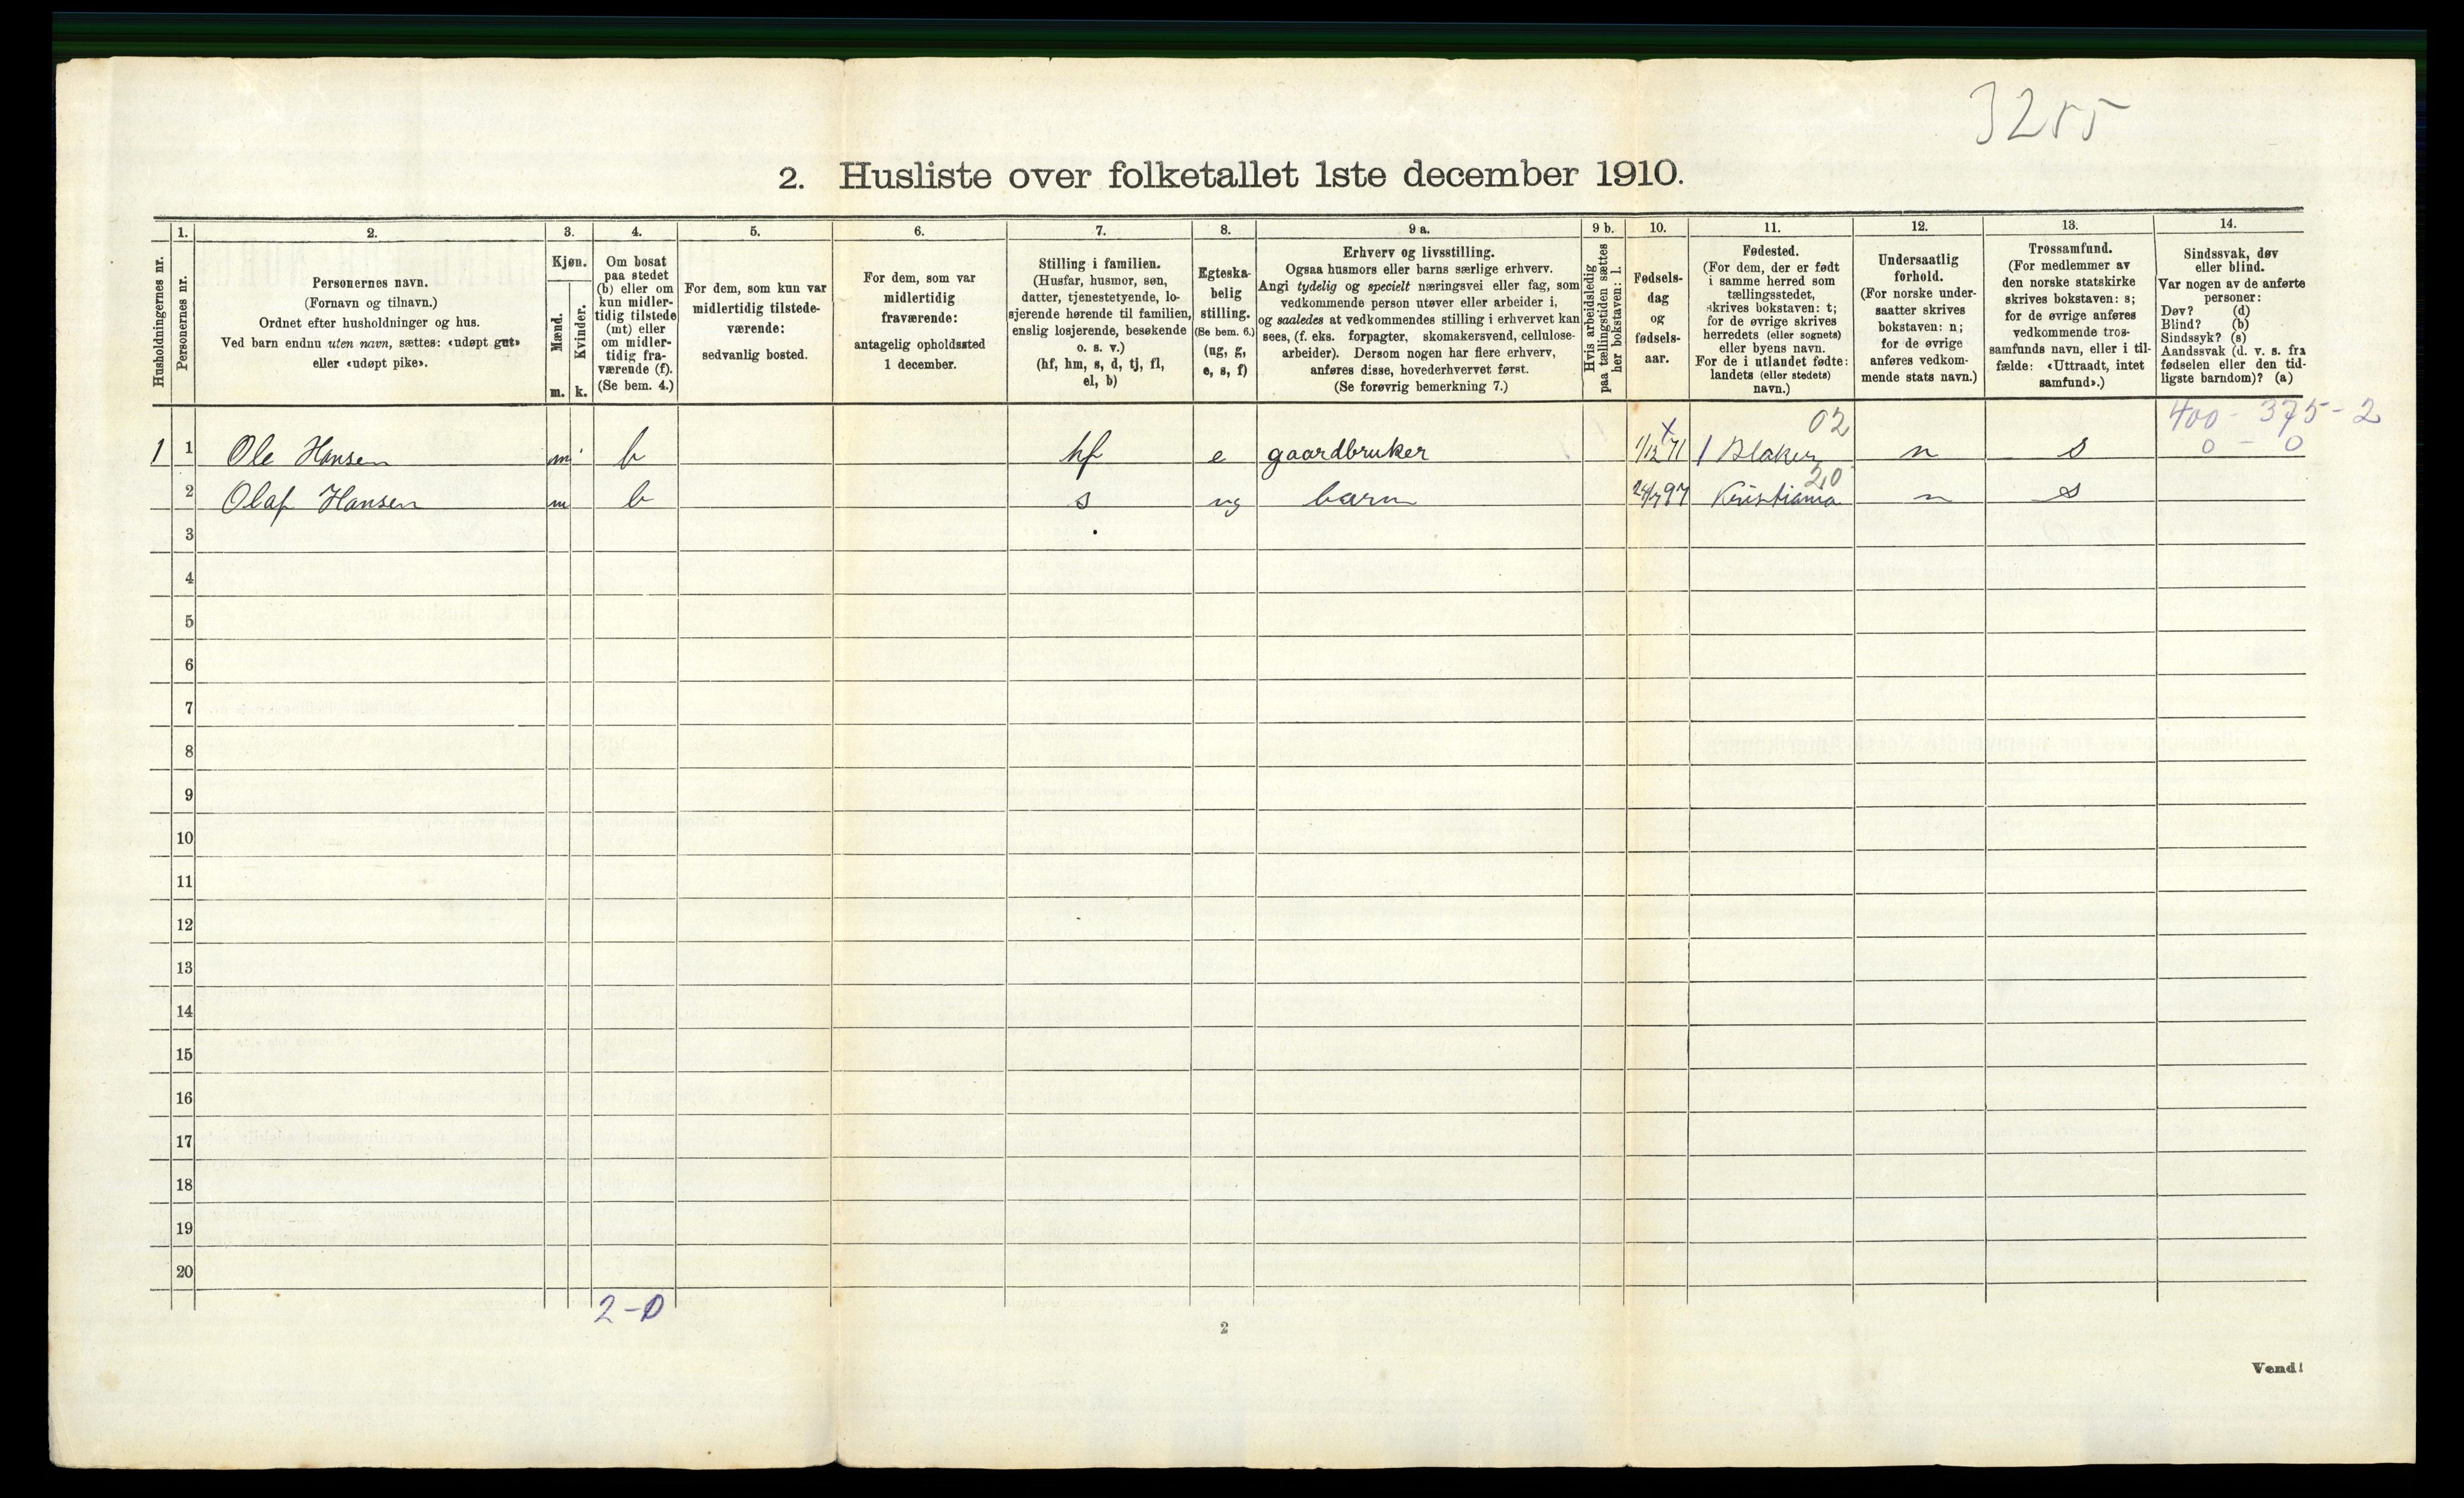 3255
2. Husliste over folketallet 1ste december 1910.
Husholdningernes nr.
1.
Personernes nr.
2.
Personernes navn.
(Fornavn og tilnavn.)
Ordnet efter husholdninger og hus.
Ved barn endnu uten navn, sættes: «udøpt gut»
eller «udøpt pike».
3.
Kjøn.
Mænd.
Kvinder.
m. k.
4.
Om bosat
paa stedet
(b) eller om
kun midler-
tidig tilstede
(mt) eller
om midler-
tidig fra-
værende (f).
(Se bem. 4.)
5.
For dem, som kun var
midlertidig tilstede-
værende:
sedvanlig bosted.
6.
For dem, som var
midlertidig
fraværende:
antagelig opholdssted
1 december.
7.
Stilling i familien.
(Husfar, husmor, søn,
datter, tjenestetyende, lo-
sjerende hørende til familien,
enslig losjerende, besøkende
o. s. v.)
(hf, hm, s, d, tj, fl,
el, b)
8.
Egteska-
belig
stilling.
(Se bem. 6.)
(ug, g,
e, s, f)
9 a.
Erhverv og livsstilling.
Ogsaa husmors eller barns særlige erhverv.
Angi tydelig og specielt næringsvei eller fag, som
vedkommende person utøver eller arbeider i,
og saaledes at vedkommendes stilling i erhvervet kan
sees, (f. eks. forpagter, skomakersvend, cellulose-
arbeider). Dersom nogen har flere erhverv,
anføres disse, hovederhvervet først.
(Se forøvrig bemerkning 7.)
9 b.
Hvis arbeidsledig
paa tællingstiden sættes
her bokstaven: l.
10.
Fødsels-
dag
og
fødsels-
aar.
11.
Fødested.
(For dem, der er født
i samme herred som
tællingsstedet,
skrives bokstaven: t;
for de øvrige skrives
herredets (eller sognets)
eller byens navn.
For de i utlandet fødte:
landets (eller stedets)
navn.)
12.
Undersaatlig
forhold.
(For norske under-
saatter skrives
bokstaven: n;
for de øvrige
anføres vedkom-
mende stats navn.)
13.
Trossamfund.
(For medlemmer av
den norske statskirke
skrives bokstaven: s;
for de øvrige anføres
vedkommende tros-
samfunds navn, eller i til-
fælde: «Uttraadt, intet
samfund».)
14.
Sindssvak, døv
eller blind.
Var nogen av de anførte
personer:
Døv? (d)
Blind? (b)
Sindssyk? (s)
Aandssvak (d. v. s. fra
fødselen eller den tid-
ligste barndom)? (a)
02 400 - 375 - 2
1 1 Ole Hansen m b hf e gaardbruker 1/12 71 Blaker n s 0 - 0
20
2 Olaf Hansen m b s ug barn 24/7 97 Kristiania n s
3
4
5
6
7
8
9
10
11
12
13
14
15
16
17
18
19
20
2 - 0
2
Vend!